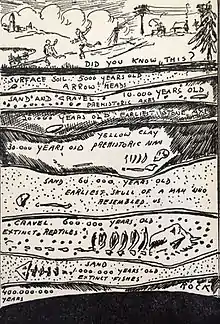 DID YOU KNOW THIS?
SURFACE SOIL. 5000 YEARS OLD
ARROW HEADS
SAND AND GRAVEL 10.000 YEARS OLD
PREHISTORIC AXES
YEARS OLD EARLIEST STONE AXE
YELLOW CLAY
30.000 YEARS OLD PREHISTORIC MAN
SAND. 60.000 YEARS OLD
EARLIEST SKULL OF A MAN WHO
RESEMBLED US
GRAVEL 600.000 YEARS OLD
EXTINCT REPTILES
SAND
1.000.000 YEARS OLD
EXTINCT FISHES
ROCK
400.000.000
YEARS